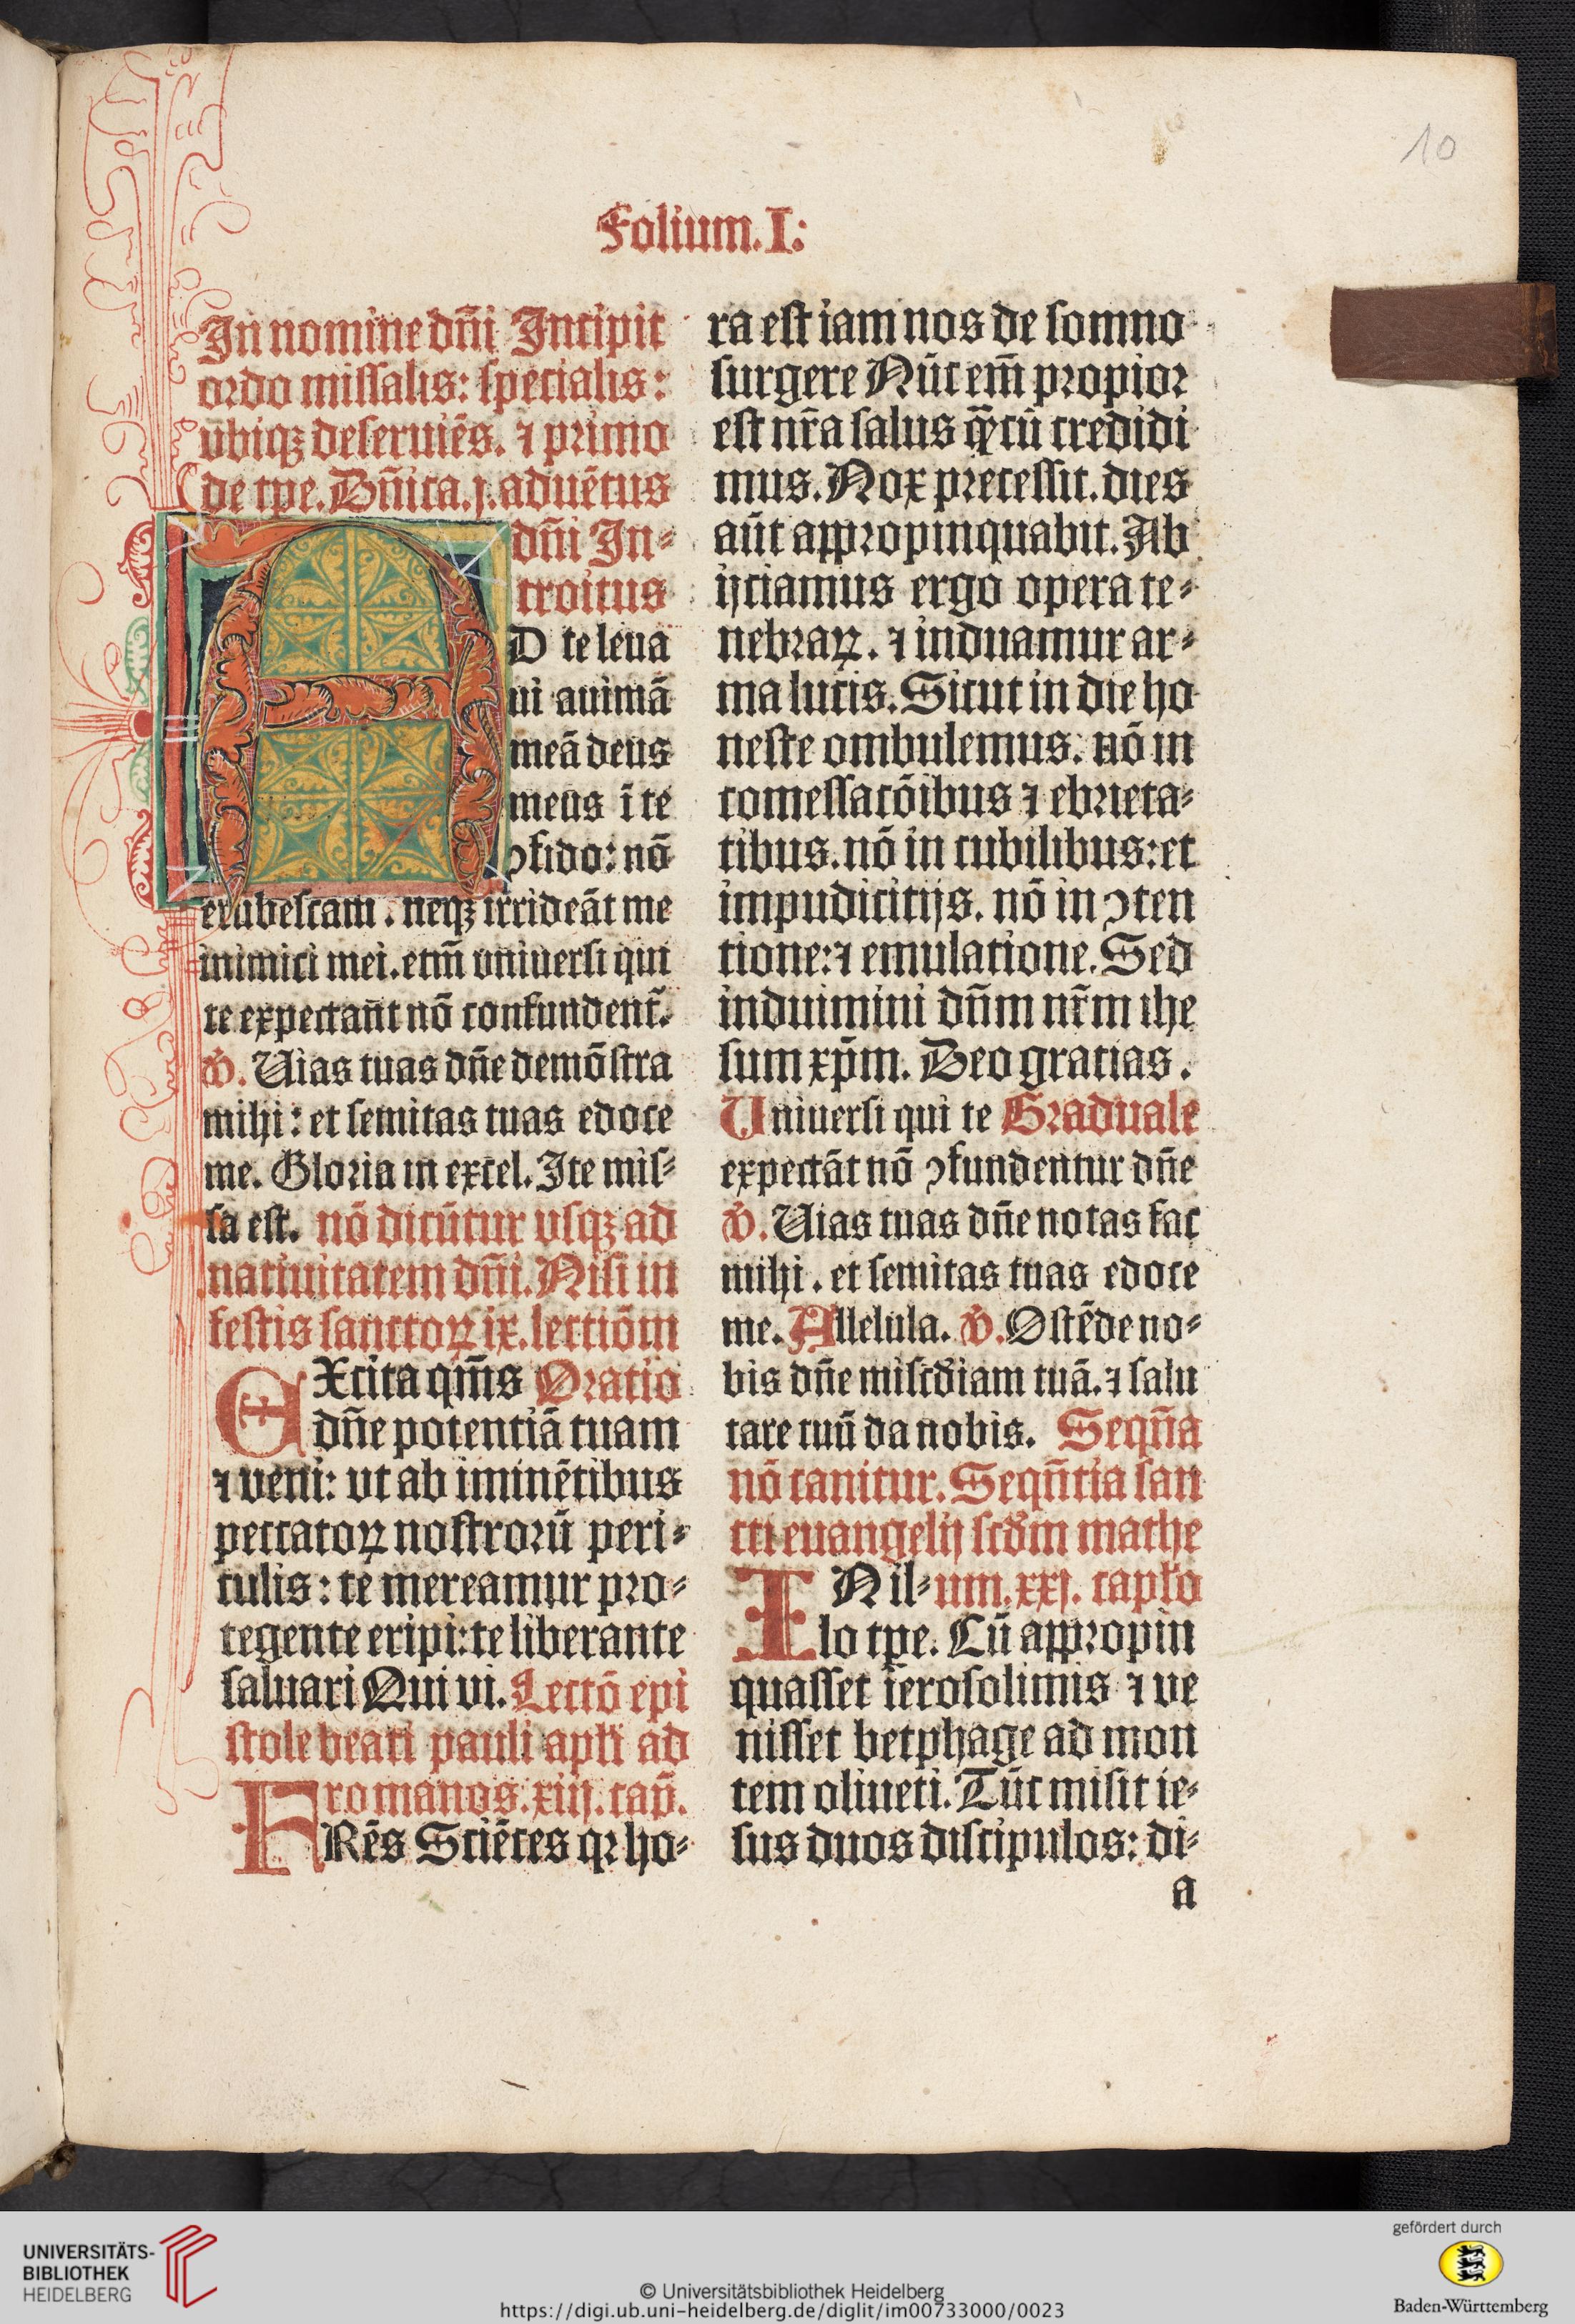 10
Folium.I:
In nomine dn̄i Incipit
ordo missalis: specialis:
vbiqꝫ deseruiēs. ⁊ primo
de tpe. Dn̄ica.j. aduētus
dn̄i In⸗
troitus
AD te leua
ui animā
meā deus
meus ī te
ꝯfido: nō
erubescam . neqꝫ irrideāt me
inimici mei. etm̄ vniuersi qui
te expectant nō confundent̄.
℣. Uias tuas dn̄e demōstra
mihi: et semitas tuas edoce
me. Gloria in excel. Ite mis⸗
sa est. nō dicūtur vsqꝫ ad
natiuitatem dn̄i. Nisi in
festis sanctoꝝ ix. lectiōm
EXcita qm̄s Oratio
dn̄e potentiā tuam
⁊ veni: vt ab iminētibus
peccatoꝝ nostrorū peri⸗
culis: te mereamur pro⸗
tegente eripi: te liberante
saluari Qui vi. Lectō epi
stole beati pauli apl̄i ad
romanos. xiij. cap̄.
FRēs Sciētes qꝛ ho⸗
ra est iam nos de somno
surgere Nūc em̄ propior
est nr̄a salus q̄ꝫ cū credidi
mus. Nox precessit. dies
aūt appropinquabit. Ab
ijciamus ergo opera te⸗
nebraꝝ. ⁊ induamur ar⸗
ma lucis. Sicut in die ho
neste ombulemus: nō in
comessatōibus ⁊ ebrieta⸗
tibus. nō in cubilibus: et
impudicitijs. nō in ꝯten
tione: ⁊ emulatione. Sed
induimini dn̄m nr̄m ihe
sum xp̄m. Deo gratias.
Uniuersi qui te Graduale
expectāt nō ꝯfundentur dn̄e
℣. Uias tuas dn̄e notas fac
mihi. et semitas tuas edoce
me. Allelula. ℣. Ostēde no⸗
bis dn̄e miscd̄iam tuā. ⁊ salu
tare tuū da nobis. Seqn̄a
nō canitur. Seqn̄tia san
cti euangelij scd̄m mathe
INil⸗um. xxj. capl̓o
lo tpe. Cū appropin
quasset ierosolimis ⁊ ve
nisset betphage ad mon
tem oliueti. Tūc misit ie⸗
sus duos discipulos: di⸗
a
UNIVERSITÄTS-
BIBLIOTHEK
HEIDELBERG
© Universitätsbibliothek Heidelberg
https://digi.ub.uni-heidelberg.de/diglit/im00733000/0023
gefördert durch
Baden-Württemberg